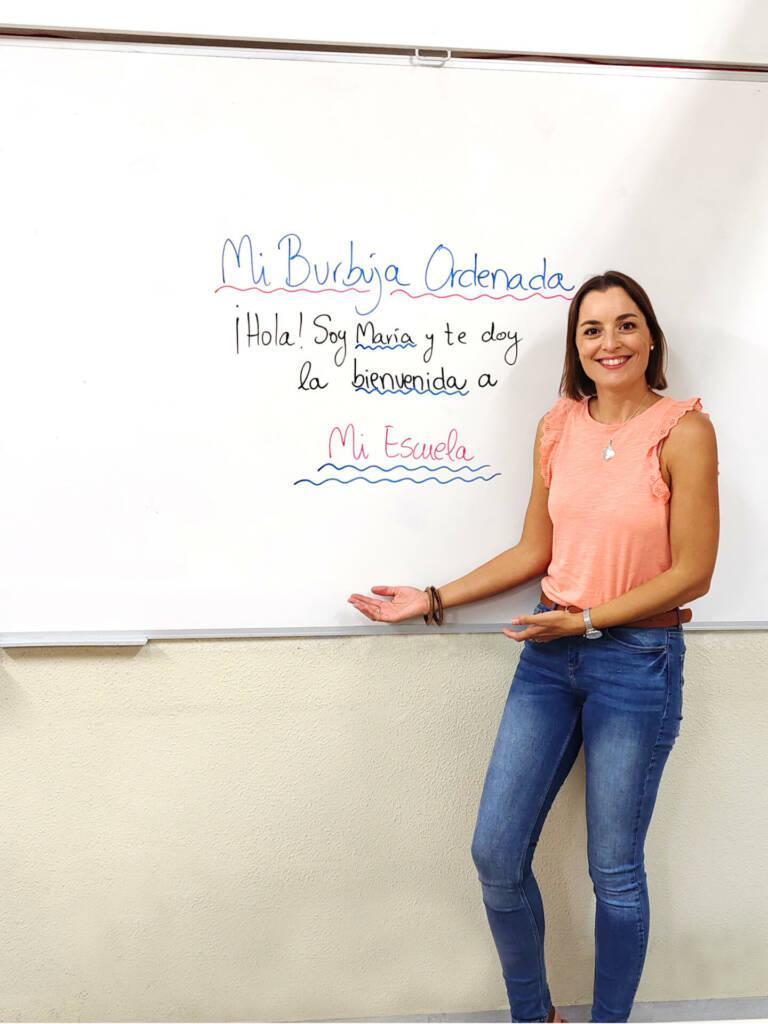 Mi Burbuja Ordenada
¡Hola! Soy María y te doy
la bienvenida a
Mi Escuela